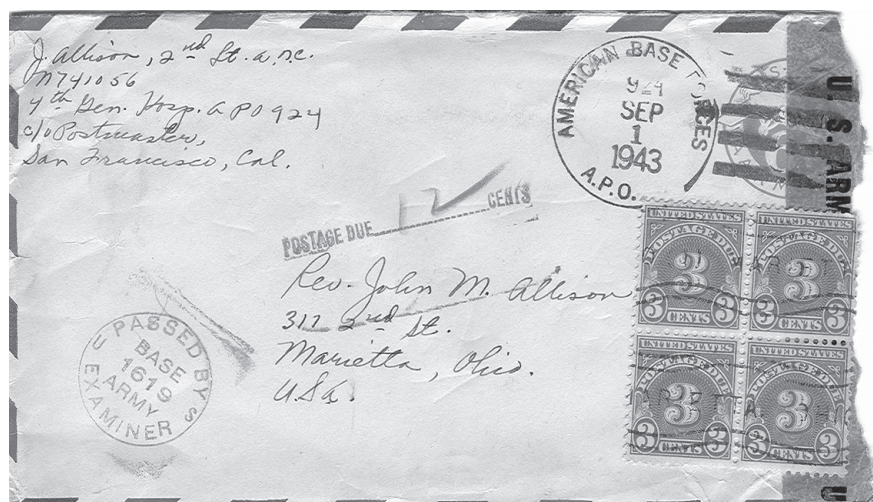 J. Allison, 2nd Lt. a.n.c.
N741056
4th Gen. Hosp. APO 924
c/o Postmaster,
San Francisco, Cal.
AMERICAN BASE FORCES
924
SEP
1
1943
A.P.O.
U.S. ARM
POSTAGE DUE 12 CENTS
Rev. John M. Allison
317 2nd St.
Marietta, Ohio.
USA.
PASSED BY
BASE
1619
ARMY
EXAMINER
U S
UNITED STATES
POSTAGE DUE
3
3 CENTS 3
UNITED STATES
POSTAGE DUE
3
3 CENTS 3
UNITED STATES
POSTAGE DUE
3
3 CENTS 3
UNITED STATES
POSTAGE DUE
3
3 CENTS 3
U